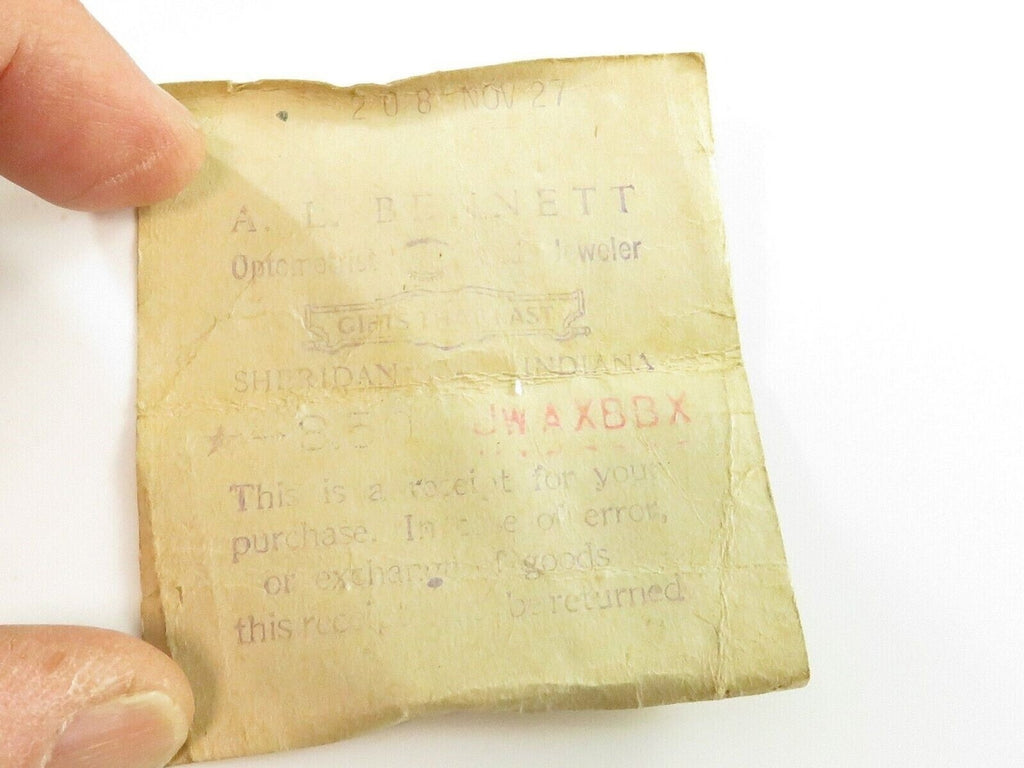 208 NOV 27
A. L. BENNETT
Optometrist Jeweler
GIFTS THAT LAST
SHERIDAN INDIANA
JWAXBBX
This is a receipt for your
purchase. In case of error,
or exchange of goods
this receipt be returned